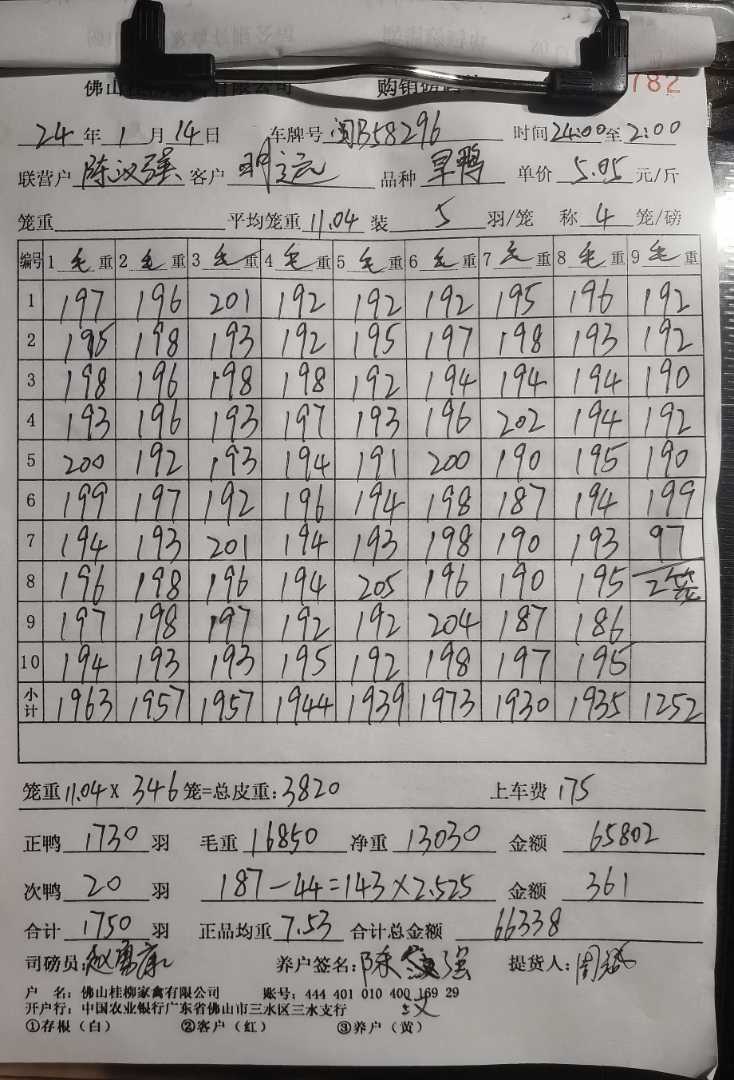 佛山桂 有限公司 购销 782
24年1月14日 车牌号 闽B58296 时间24:00至2:00
联营户 陈汉强 客户 明远 品种 旱鸭 单价 5.05 元/斤
笼重 平均笼重 11.04 装 5 羽/笼 称 4 笼/磅
编号 1 毛 重 2 毛 重 3 毛 重 4 毛 重 5 毛 重 6 毛 重 7 毛 重 8 毛 重 9 毛 重
1 197 196 201 192 192 192 195 196 192
2 195 198 193 192 195 197 198 193 192
3 198 196 198 198 192 194 194 194 190
4 193 196 193 197 193 196 202 194 192
5 200 192 193 194 191 200 190 195 190
6 199 197 192 196 194 198 187 194 199
7 194 193 201 194 193 198 190 193 97
8 196 198 196 194 205 196 190 195 2笼
9 197 198 197 192 192 204 187 186
10 194 193 193 195 192 198 197 195
小计 1963 1957 1957 1944 1939 1973 1930 1935 1252
笼重 11.04 X 346 笼=总皮重:3820 上车费 175
正鸭 1730 羽 毛重 16850 净重 13030 金额 65802
次鸭 20 羽 187-44=143×2.525 金额 361
合计 1750 羽 正品均重 7.53 合计总金额 66338
司磅员:赵勇康 养户签名:陈 强 提货人:周
汉
户 名:佛山桂柳家禽有限公司 账号:444 401 010 400 169 29
开户行:中国农业银行广东省佛山市三水区三水支行
①存根(白) ②客户(红) ③养户(黄)